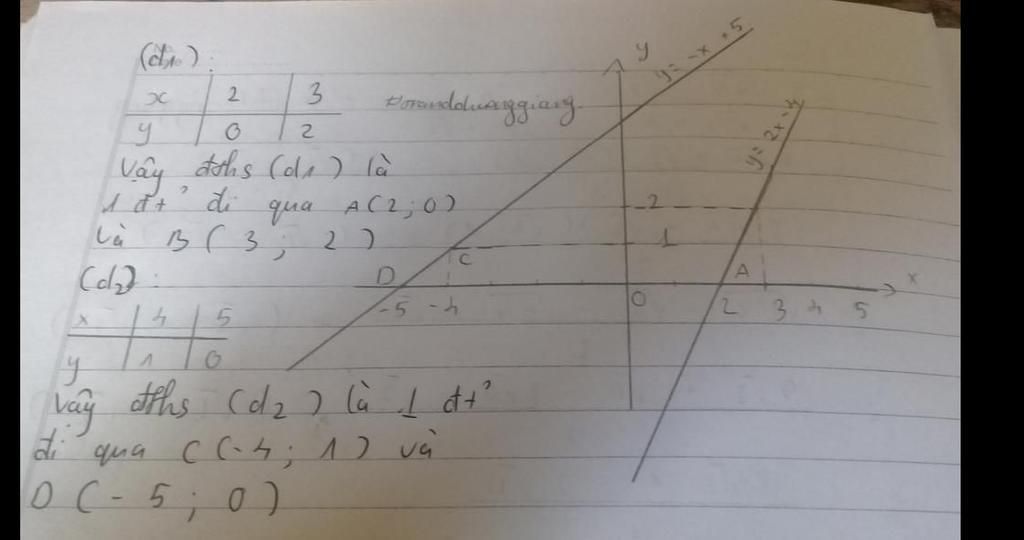 (d1):
x | 2 | 3
y | 0 | 2
Vậy đths (d1) là
1 đt' đi qua A(2;0)
và B ( 3 ; 2 )
(d2) :
x | 4 | 5
y | 1 | 0
Vậy đths (d2) là 1 đt'
đi qua C (-4 ; 1) và
D (- 5 ; 0)
y
y = -x + 5
y = 2x - 4
2
1
C
D
A
x
-5 -4 O 2 3 4 5